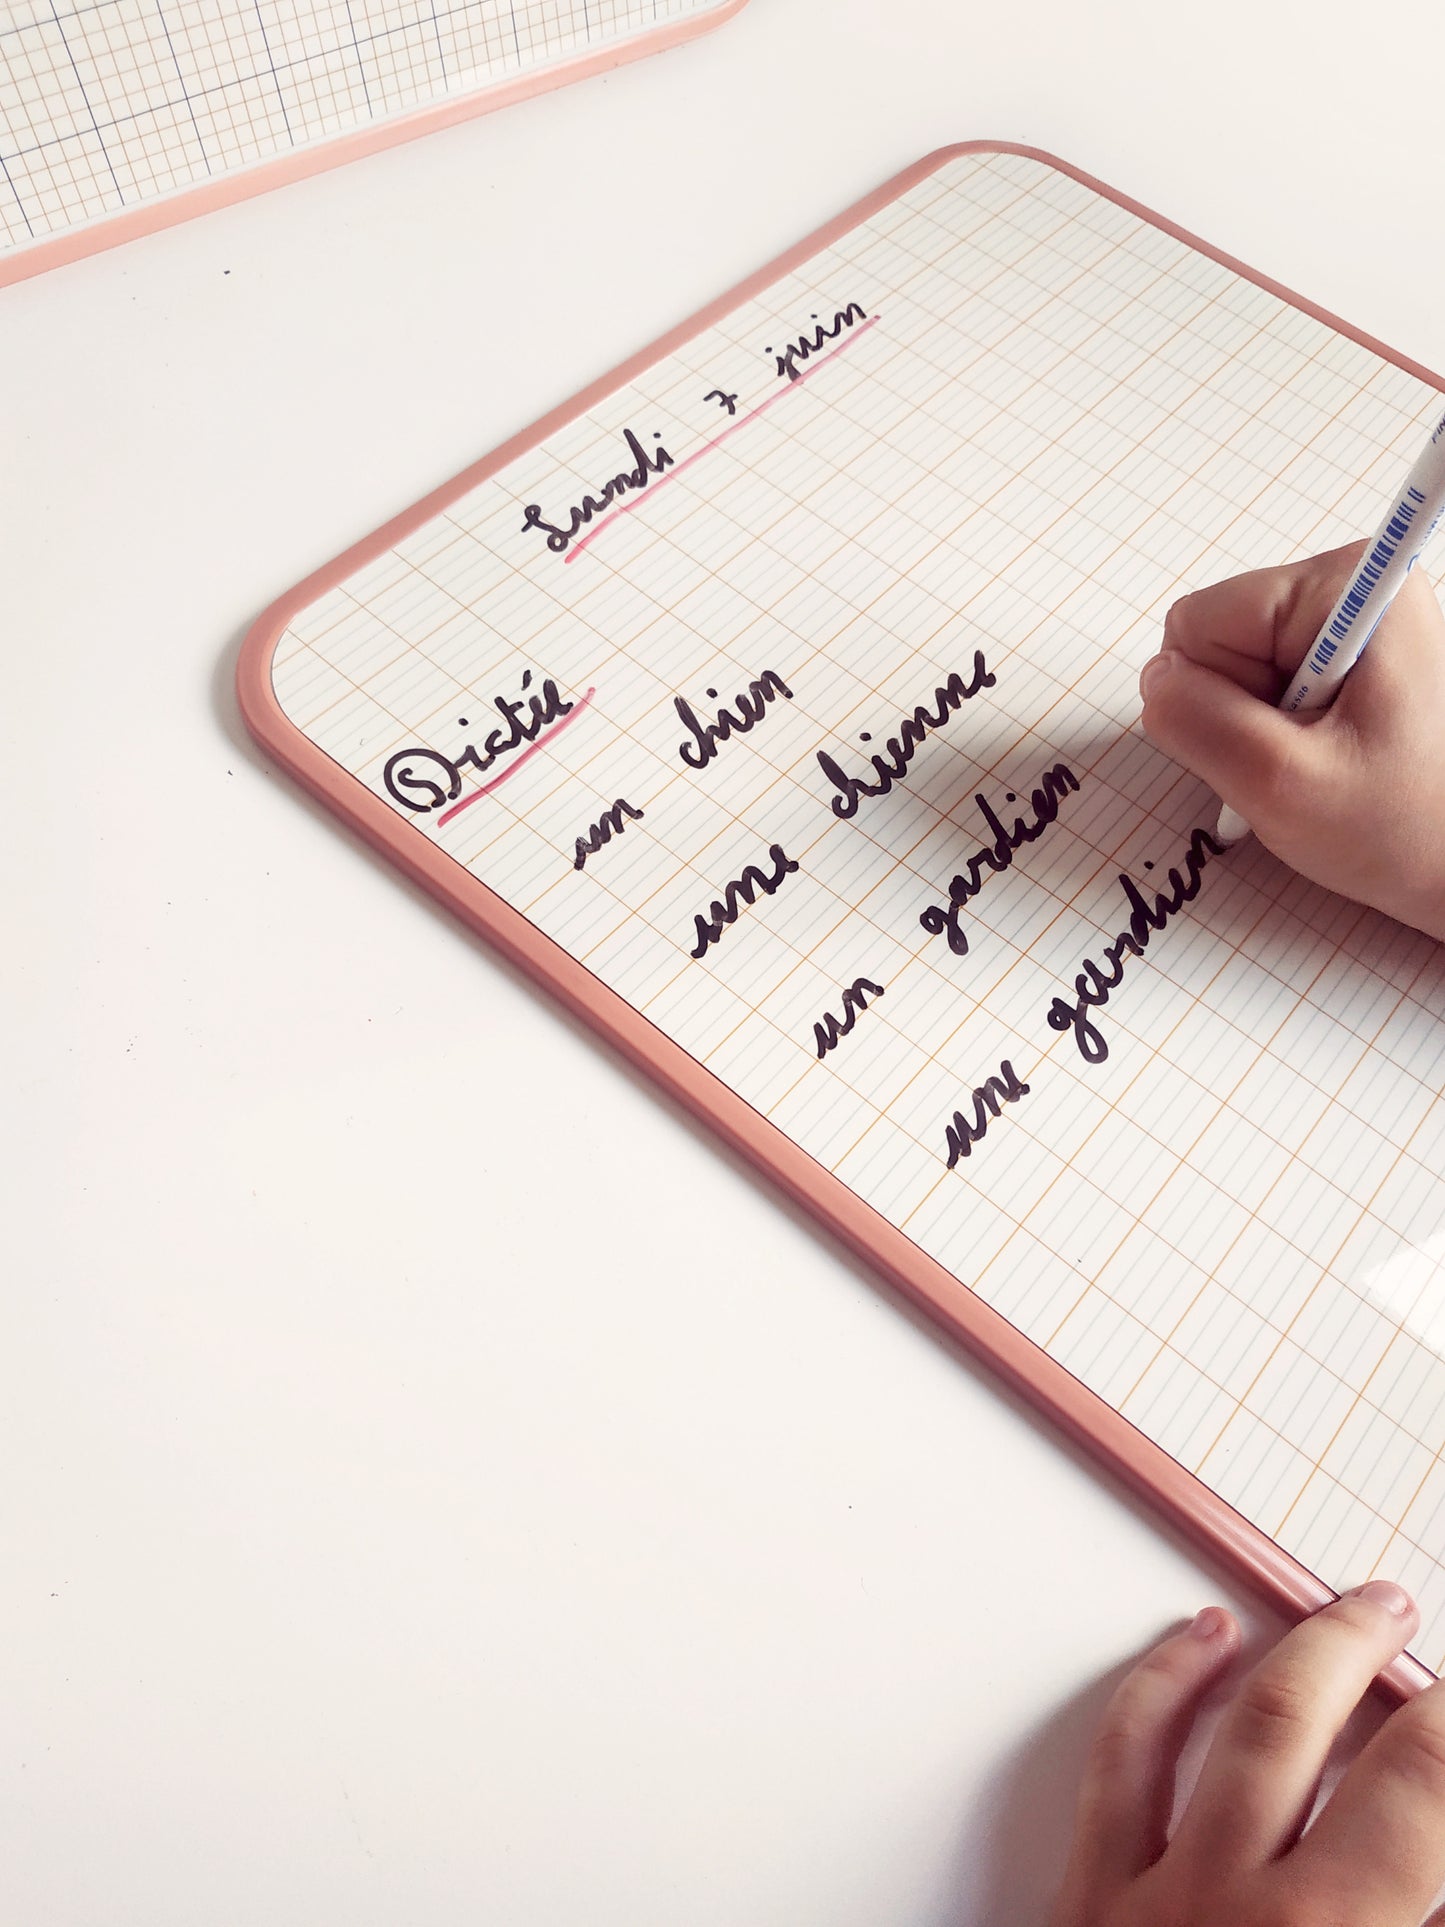 Lundi 7 juin
Dictée
un chien
une chienne
un gardien
une gardien